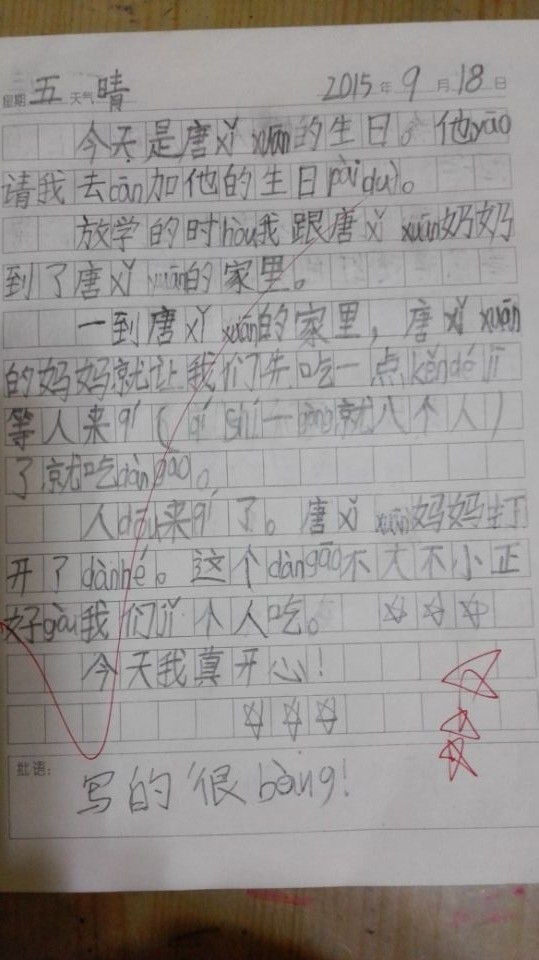 星期 五 天气 晴 2015 年 9 月 18 日
今天是唐xǐ xuān的生日。他yāo
请我去cān加他的生日pàiduì。
放学的时hòu我跟唐xǐ xuān奶奶
到了唐xǐ xuān的家里。
一到唐xǐ xuān的家里，唐xǐ xuān
的妈妈就让我们先吃一点kěndé jī
等人来qí（qí shí一gòng就八个人）
了就吃dàngāo。
人dōu来qí了。唐xǐ xuān妈妈打
开了dànhé。这个dàngāo不大不小正
好gòu我们jǐ个人吃。☆☆☆
今天我真开心！
☆☆☆
批语：
写的很bàng！